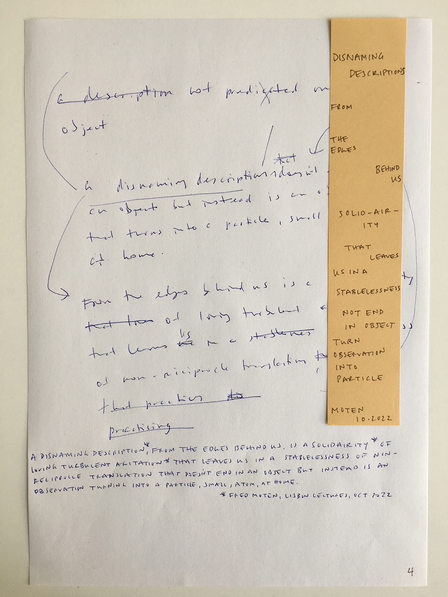 a description not predicated on
object
a disnaming description
an object but instead is an
that turns into a particle, small
at home.
From the edges behind us is a
of loving turbulent
that leaves us in a
of non-reciprocle translation
that practices to
practicing
DISNAMING
DESCRIPTIONS
FROM
THE
EDGES
BEHIND
US
SOLID-AIR-
ITY
THAT
LEAVES
US IN A
STABLELESSNESS
NOT END
IN OBJECT
TURN
OBSERVATION
INTO
PARTICLE
MOTEN
10.2022
A DISNAMING DESCRIPTION*, FROM THE EDGES BEHIND US, IS A SOLIDAIRITY* OF
LOVING TURBULENT AGITATION* THAT LEAVES US IN A STABLELESSNESS OF NON-
RECIPROCLE TRANSLATION THAT DOESN'T END IN AN OBJECT BUT INSTEAD IS AN
OBSERVATION TURNING INTO A PARTICLE, SMALL, ATOM, AT HOME.
*FRED MOTEN, LISBON LECTURES, OCT 2022
4